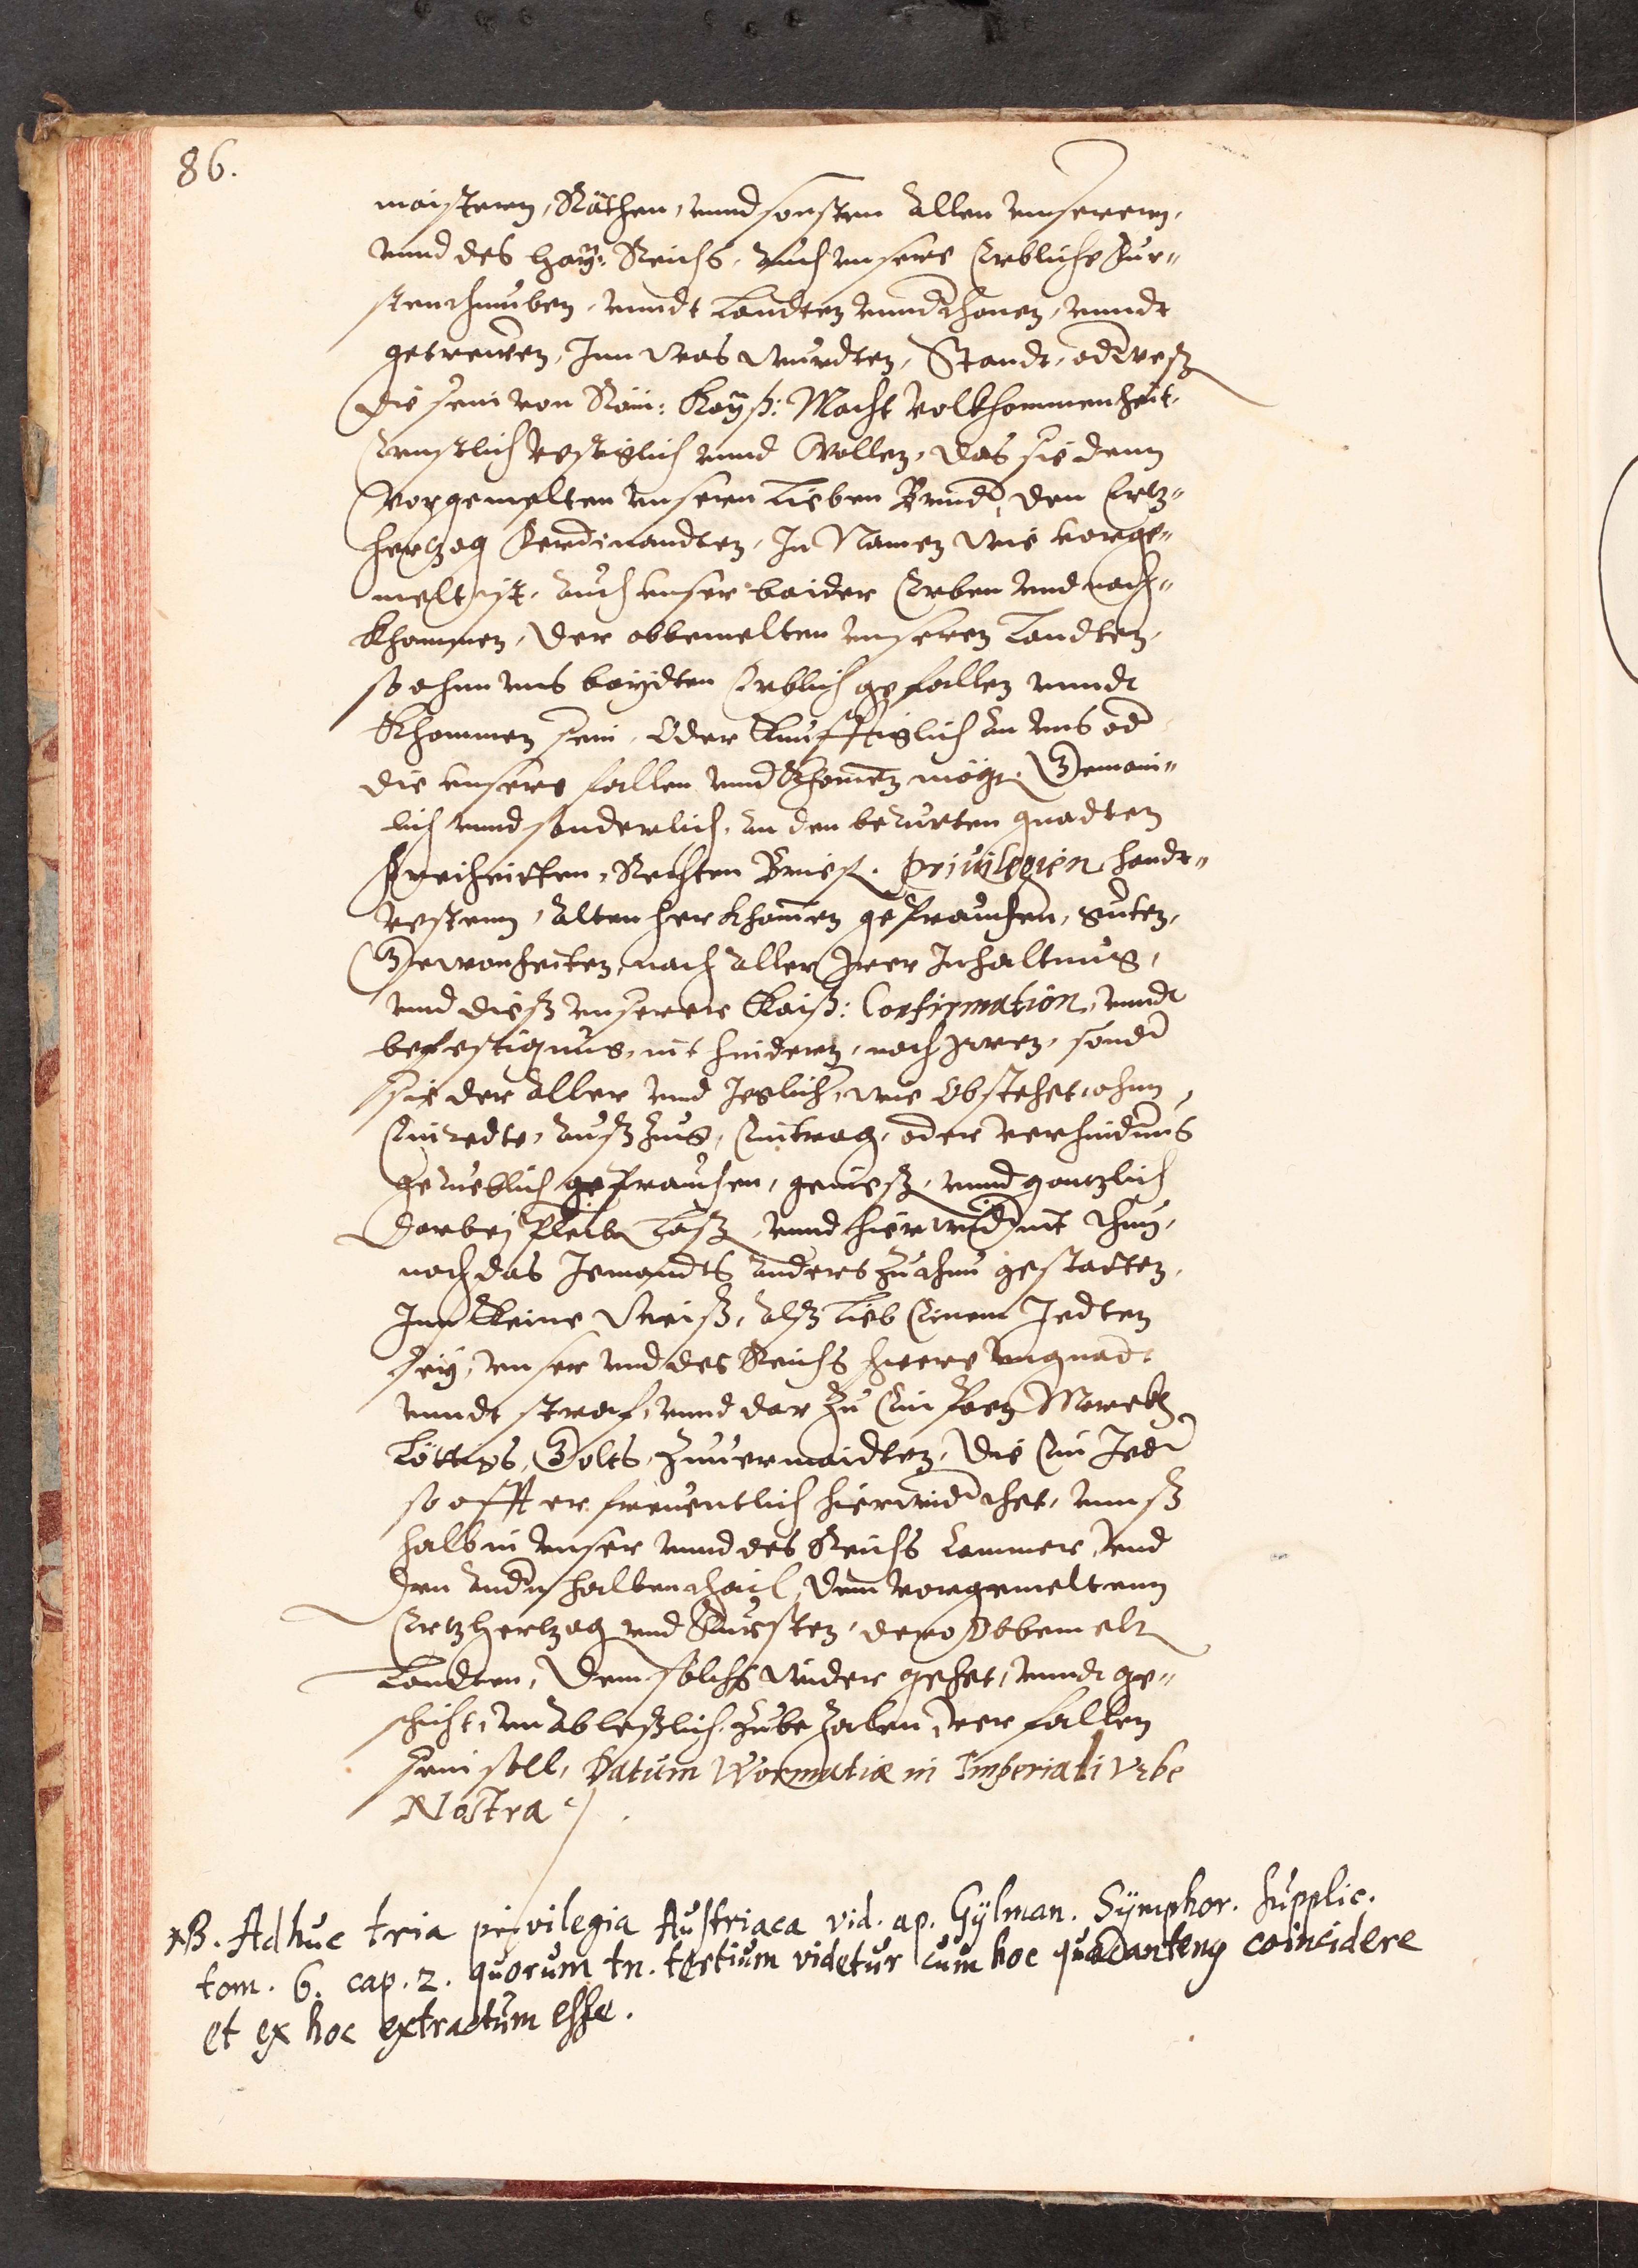 86.
maistern, Räthen, vnnd sonsten Allen vnserenn,
vnnd des Hay: Reichs, Auch vnsere Erbliche Fur=
stenthumben, vnndt Landten vnnderthonen, vnndt
getrewen, Inn was wurdten, Standt, oder weß
die sein von Röm: Kayß: Macht volkhommenheit,
Ernstlich vestiglich vnnd Wollen, das sie denn
vorgemelten vnsern Lieben Bruder, den Ertz=
hertzog Ferdinandten, In Namen wie vorge=
melt ist, Auch vnser baider Erben vnd nach=
khommen, der obbemelten vnseren Landten,
so ahnn vns baydten Erblich gefallen vnndt
khommen sein, Oder kunfftiglich an vns oder
die vnsere fallen vnnd khomen mögen, Gemain=
lich vnnd sonderlich, An den berurten gnadten
Freiheitten, Rechten Brief, Privilegien handt=
vestenn, Alten herkhomen gebrauchen, guten,
Gewonheiten, nach Aller Irer Inhaltnus,
vnd dieß vnserer Kaiß: Confirmation, vnndt
befestignus, nit hindern, noch Irren, sonder
sie der Aller vnd Jeglich, wie Obstehet, ohnn
Einredte, Außzug, Eintrag, oder verhindrung
geruehlich gebrauchen, genieß, vnnd gantzlich
darbej pleiben Laß, vnnd hierwider nit thun,
noch das Jemandts Anders zu thun gestatten,
Inn kheine Weiß, Alß Lieb Einem Jedten
sey, vnser vnd des Reichs schwere vngnadt
vnndt straf, vnnd dar zu Ein Poen Marckh
Löttigs, Golts, zuuermaidten, die Ein Jeder
so offt er freuentlich hierwider thet, vnnß
halb in vnser vnnd des Reichs Cammer, vnd
den Andern halben thail, dem vorgemeltenn
Ertzhertzog vnd Fursten, dero Obbemelt
Landten, dem solchs wider gehet, vnndt ge=
schicht, vnableßlich zubezalen, verfallen
sein soll, Datum Wormatiæ in Imperiali Vrbe
Nostra
NB. Adhuc tria privilegia Austriaca vid. ap. Gylman. Symphor. supplic.
tom. 6. cap. 2. quorum tn. tertium videtur cum hoc quadanteng coincidere
et ex hoc extractum esse.